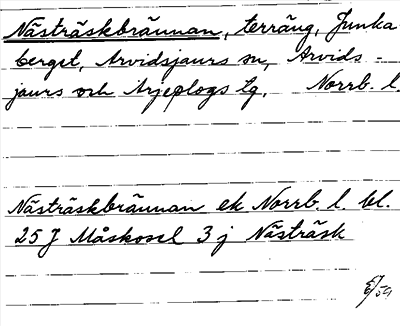 Nästräskbrännan, terräng, Junka
berget, Arvidsjaurs sn, Arvids-
jaurs och Arjeplogs tg. Norrb. l.
Nästräskbrännan ek Norrb. l. bl.
25 J Måskosel 3 j Nästräsk